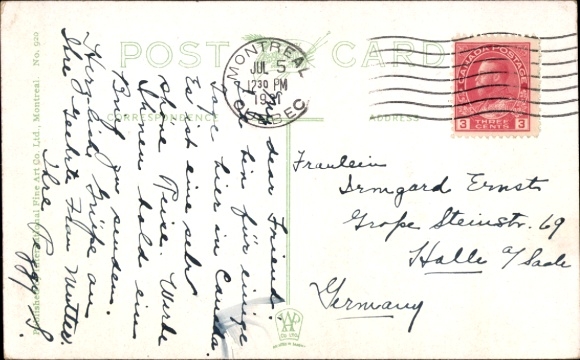 POST CARD
CORRESPONDENCE
ADDRESS
MONTREAL
JUL 5
12 30 PM
QUEBEC
CANADA POSTAGE
3 THREE CENTS 3
My dear Friend,
Ich bin für einige
Tage hier in Canada.
Es ist eine sehr
schöne Reise. Werde
Ihnen bald ein
Brief zu senden.
Herzliche Grüße an
Ihre geehrte Frau Mutter.
Ihre Peggy
Fraulein
Irmgard Ernst
Große Steinstr. 69
Halle a/Saale
Germany
International Fine Art Co. Ltd., Montreal. No. 920